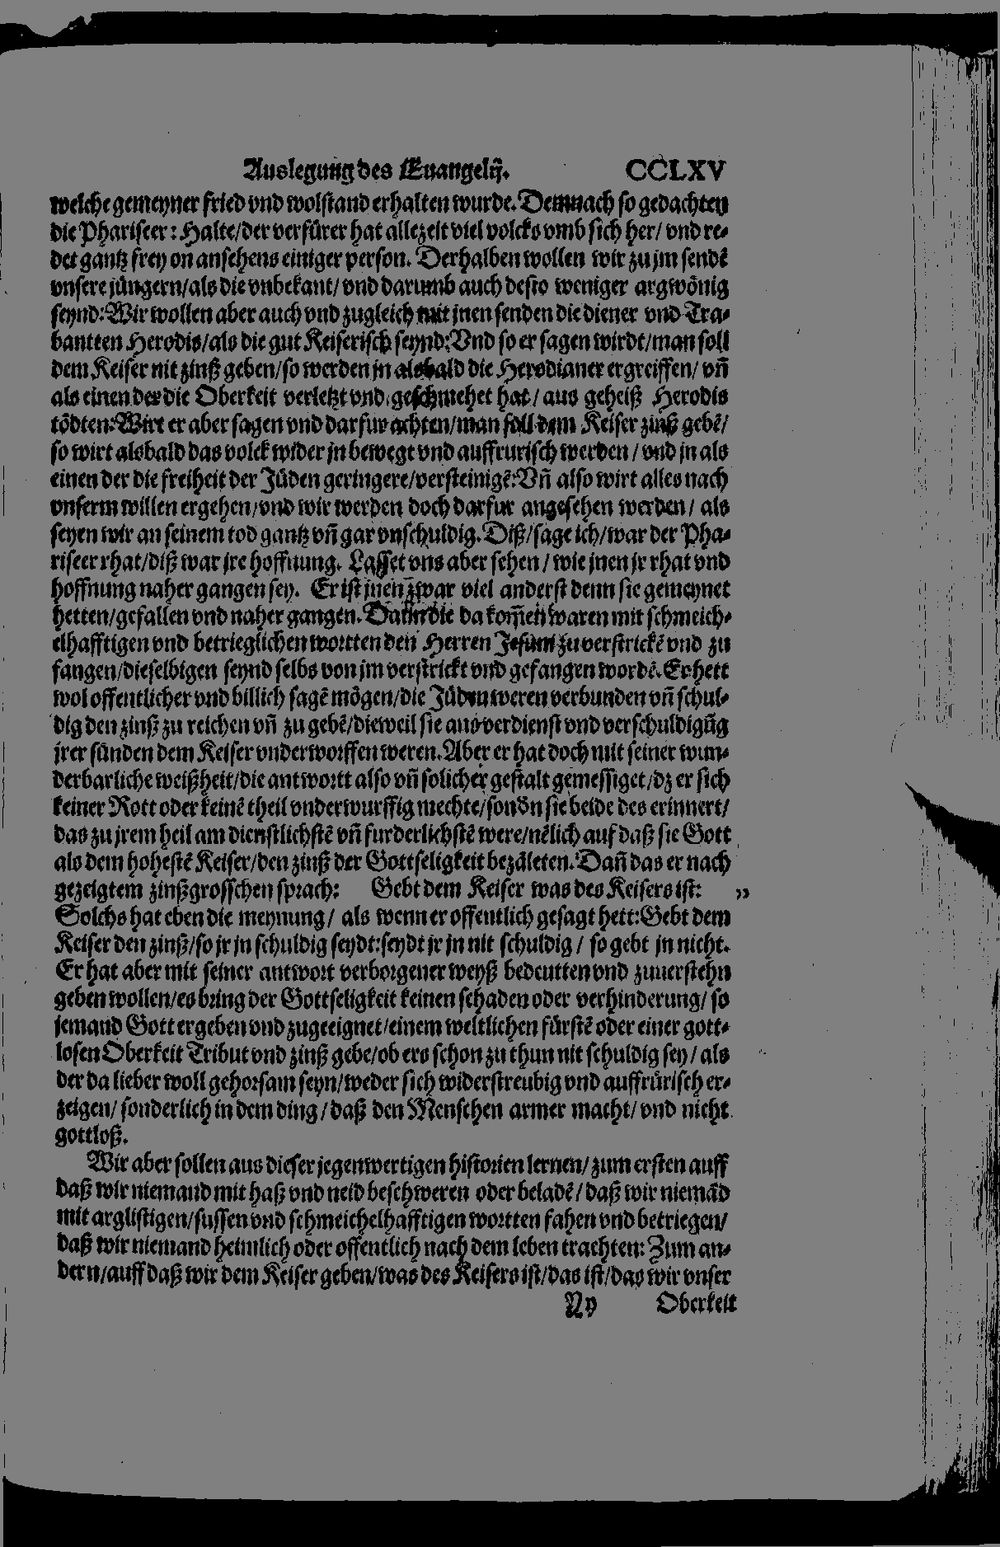 Auslegung des Euangelij. CCLXV
welche gemeyner fried vnd wolstand erhalten wurde. Demnach so gedachten
die Phariseer: Halte/der verfürer hat allezeit viel volcks vmb sich her/ vnd re-
det gantz frey on ansehens einiger person. Derhalben wollen wir zu jm sendē
vnsere jüngern/als die vnbekant/ vnd darumb auch desto weniger argwönig
seynd: Wir wollen aber auch vnd zugleich mit jnen senden die diener vnd Tra-
bantten Herodis/als die gut Keiserisch seynd: Vnd so er sagen wirdt/man soll
dem Keiser nit zinß geben/so werden jn alsbald die Herodianer ergreiffen/ vñ
als einen der die Oberkeit verletzt vnd geschmehet hat/ aus geheiß Herodis
tödten: Wirt er aber sagen vnd darfur achten/man soll dem Keiser zinß gebē/
so wirt alsbald das volck wider jn bewegt vnd auffrurisch werden/ vnd jn als
einen der die freiheit der Jüden geringere/versteinigē: Vñ also wirt alles nach
vnserm willen ergehen/vnd wir werden doch darfur angesehen werden/ als
seyen wir an seinem tod gantz vñ gar vnschuldig. Diß/sage ich/war der Pha-
riseer rhat/diß war jre hoffnung. Lasset vns aber sehen/ wie jnen jr rhat vnd
hoffnung naher gangen sey. Er ist jnen zwar viel anderst denn sie gemeynet
hetten/gefallen vnd naher gangen. Dañ die da kom̃en waren mit schmeich-
elhafftigen vnd betrieglichen wortten den Herren Jesum zu verstrickē vnd zu
fangen/dieselbigen seynd selbs von jm verstrickt vnd gefangen wordē. Er hett
wol offentlicher vnd billich sagē mögen/die Jüden weren verbunden vñ schul-
dig den zinß zu reichen vñ zu gebē/dieweil sie aus verdienst vnd verschuldigūg
jrer sünden dem Keiser vnderworffen weren. Aber er hat doch mit seiner wun-
derbarliche weißheit/die antwortt also vñ solicher gestalt gemessiget/dz er sich
keiner Rott oder keinē theil vnderwurffig mechte/sondn sie beide des erinnert/
das zu jrem heil am dienstlichstē vñ furderlichstē were/nēlich auf daß sie Gott
als dem hohestē Keiser/den zinß der Gottseligkeit bezäleten. Dañ das er nach
gezeigtem zinßgrosschen sprach: Gebt dem Keiser was des Keisers ist: „
Solchs hat eben die meynung/ als wenn er offentlich gesagt hett: Gebt dem
Keiser den zinß/so jr jn schuldig seydt: seydt jr jn nit schuldig/ so gebt jn nicht.
Er hat aber mit seiner antwort verborgener weyß bedeutten vnd zuuerstehn
geben wollen/es bring der Gottseligkeit keinen schaden oder verhinderung/ so
jemand Gott ergeben vnd zugeeignet/einem weltlichen fürstē oder einer gott-
losen Oberkeit Tribut vnd zinß gebe/ob ers schon zu thun nit schuldig sey/ als
der da lieber woll gehorsam seyn/weder sich widerstreubig vnd auffrürisch er-
zeigen/ sonderlich in dem ding/daß den Menschen armer macht/ vnd nicht
gottloß.
Wir aber sollen aus dieser jegenwertigen historien lernen/zum ersten auff
daß wir niemand mit haß vnd neid beschweren oder beladē/daß wir niemād
mit arglistigen/sussen vnd schmeichelhafftigen wortten fahen vnd betriegen/
daß wir niemand heimlich oder offentlich nach dem leben trachten: Zum an-
dern/auff daß wir dem Keiser geben/was des Keisers ist/das ist/das wir vnser
Ny Oberkeit